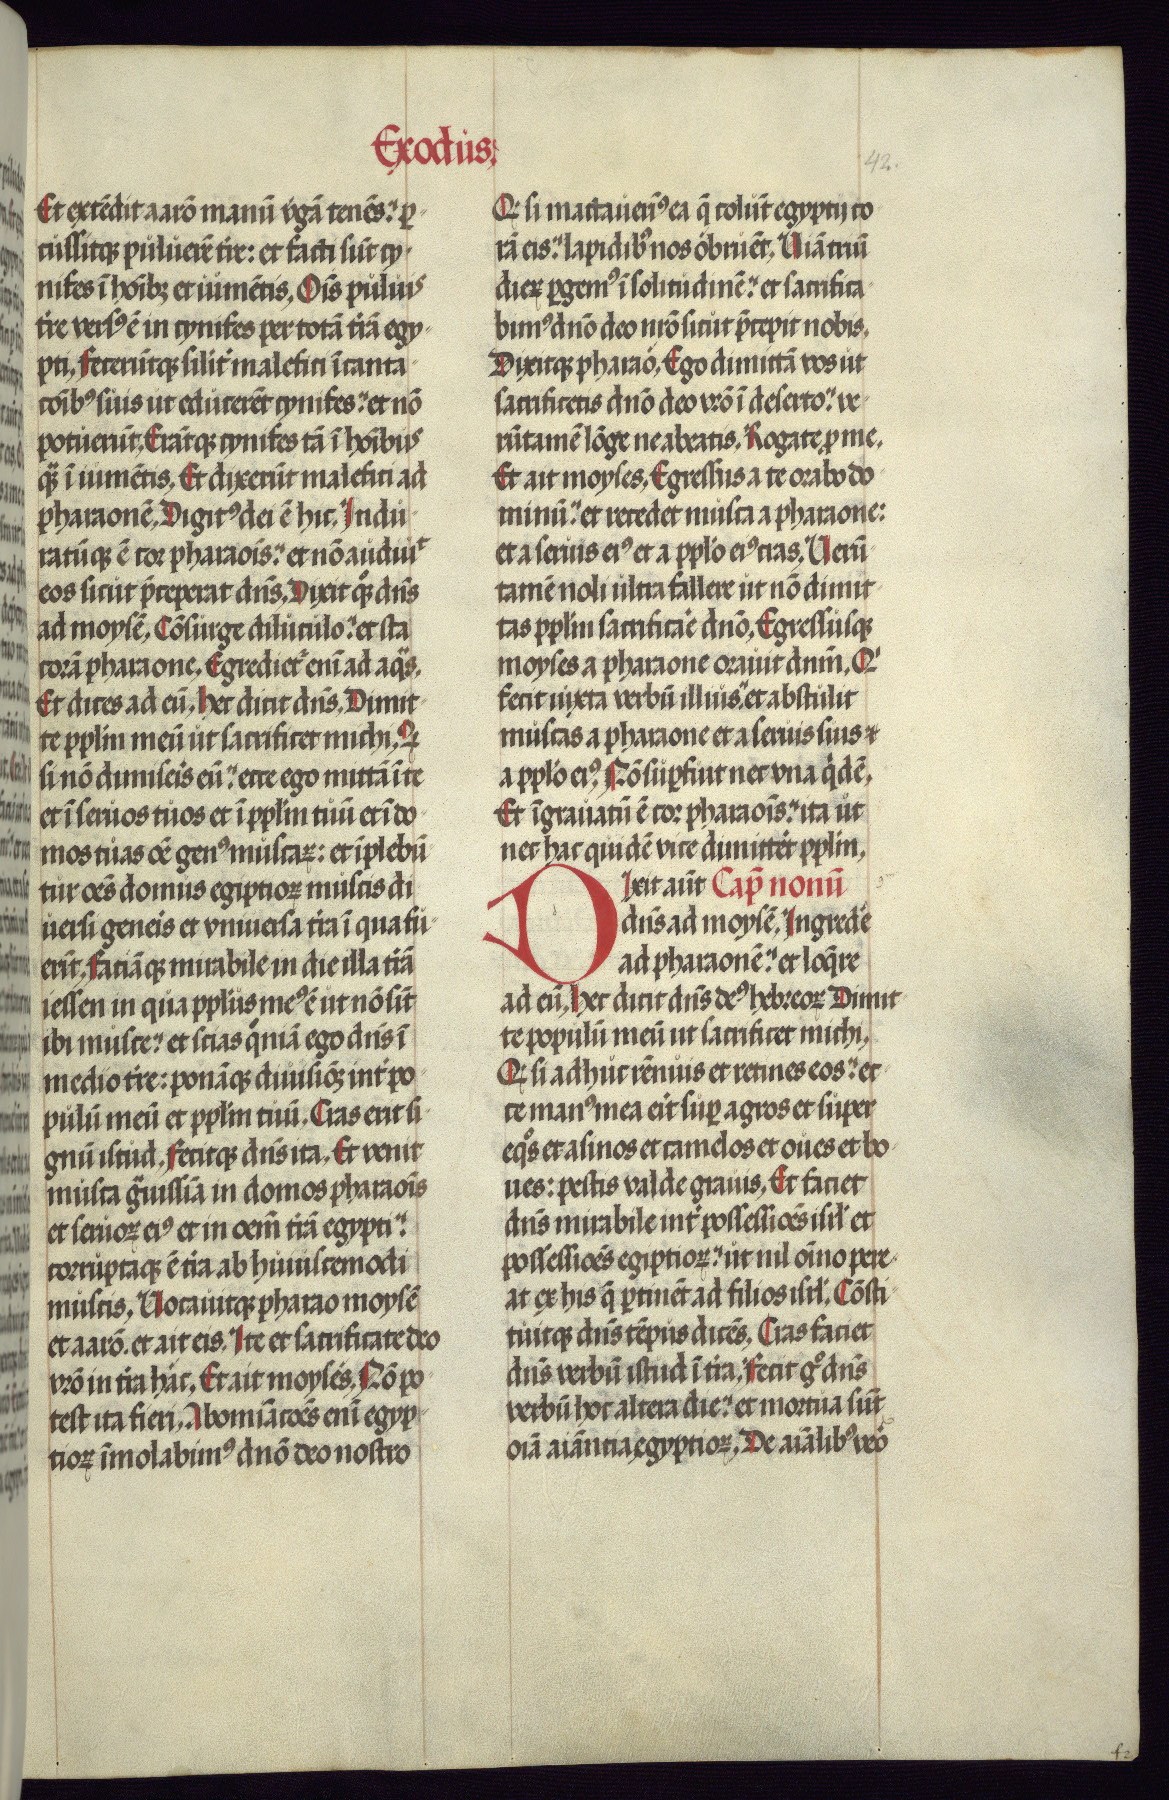 Exodus:
42.
Et extēdit aarō manū v̓gā tenēs: ꝑ
cussitqꝫ puluerē tr̄e: et facti sūt cy
nifes ī hōībꝫ et iumētis. Oīs puluis
tr̄e versꝰ ē in cynifes per totā tr̄ā egy
pti. Feceruntqꝫ silit̓ malefici ītanta
coībꝰ suis ut educerēt cynifes: et nō
potuerūt. Erātqꝫ cynifes tā ī hōībus
qͣ ī iumētis. Et dixerūt malefici ad
pharaonē. Digitꝰ dei ē hic. Indu
ratūqꝫ ē cor pharaoīs: et nō audiuit
eos sicut p̄ceperat dn̄s. Dixit qꝫ dn̄s
ad moysē. Cōsurge diluculo: et sta
corā pharaone. Egrediet᷑ enī ad aqͣs.
Et dices ad eū. Hec dicit dn̄s. Dimit
te pplm̄ meū ut sacrificet michi. Qꝫ
si nō dimiseīs eū: ecce ego mittā ī te
et ī seruos tuos et ī pplm̄ tuū et ī do
mos tuas oē genꝰ muscaꝝ: et īplebū
tur oēs domus egiptioꝝ muscis di
uersi geneīs et vniuersa tr̄a ī qua fu
erīt. Faciāqꝫ mirabile in die illa tr̄ā
iessen in qua pplus meꝰ ē ut nō sīt
ibi musce: et scias qͦniā ego dn̄s ī
medio tr̄e: ponāqꝫ diuisiōꝫ int̓ po
pulū meū et pplm̄ tuū. Cras erit si
gnū istud. Fecitqꝫ dn̄s ita. Et venit
musca gͣuissīa in domos pharaoīs
et seruoꝝ eiꝰ et in oem̄ tr̄ā egypti:
corruptaqꝫ ē tr̄a ab huiuscemodi
muscis. Uocauitqꝫ pharao moysē
et aarō. et ait eis. Ite et sacrificate deo
vr̄o in tr̄a hac. Et ait moyses. Nō po
test ita fieri. Abomīacōes enī egyp
tioꝝ īmolabimꝰ dn̄o deo nostro
Qꝫ si mactaueri̓ꝰ ea q̄ colūt egyptij co
rā eis: lapidibꝰ nos obruēt. Uiā triū
dieꝝ ꝑgemꝰ ī solitudinē: et sacrifica
bimꝰ dn̄o deo nr̄o sicut p̄cepit nobis.
Dixitqꝫ pharao. Ego dimittā vos ut
sacrificetis dn̄o deo vr̄o ī deserto: ve
rūtamē lōge ne abeatis. Rogate ꝓ me.
Et ait moyses. Egressus a te orabo do
minū: et recedet musca a pharaone:
et a seruis eiꝰ et a pplo eiꝰ cras. Uerū
tamē noli ultra fallere ut nō dimit
tas pplm̄ sacrificāe dn̄o. Egressusqꝫ
moyses a pharaone orauit dn̄m. Qi
fecit iuxta verbū illius: et abstulit
muscas a pharaone et a seruis suis ⁊
a pplo eiꝰ. Nō suꝑfuit nec vna qͥdē.
Et īgrauatū ē cor pharaoīs: ita ut
nec hac quidē vice dimittet̓ pplm̄.
Dixit aūt Cap̄ nonū
dn̄s ad moysē. Ingrede
ad pharaonē: et loq̄re
ad eū. Hec dicit dn̄s deꝰ hebreoꝝ Dimit
te populū meū ut sacrificet michi.
Qꝫ si adhuc rēnuis et retines eos: ec
ce manꝰ mea eīt suꝑ agros et super
eqͦs et asinos et camelos et oues et bo
ues: pestis valde grauis. Et faciet
dn̄s mirabile int̓ possessiōēs isrl̓ et
possessiōēs egiptioꝝ: ut nil oīno pere
at ex his q̄ ꝑtinēt ad filios isrl̓. Cōsti
tuitqꝫ dn̄s tēpus dicēs. Cras faciet
dn̄s verbū istud ī tr̄a. Fecit gͦ dn̄s
verbū hoc altera die: et mortua sūt
oīā aiāntia egyptioꝝ. De aiālibꝰ veͦ
42